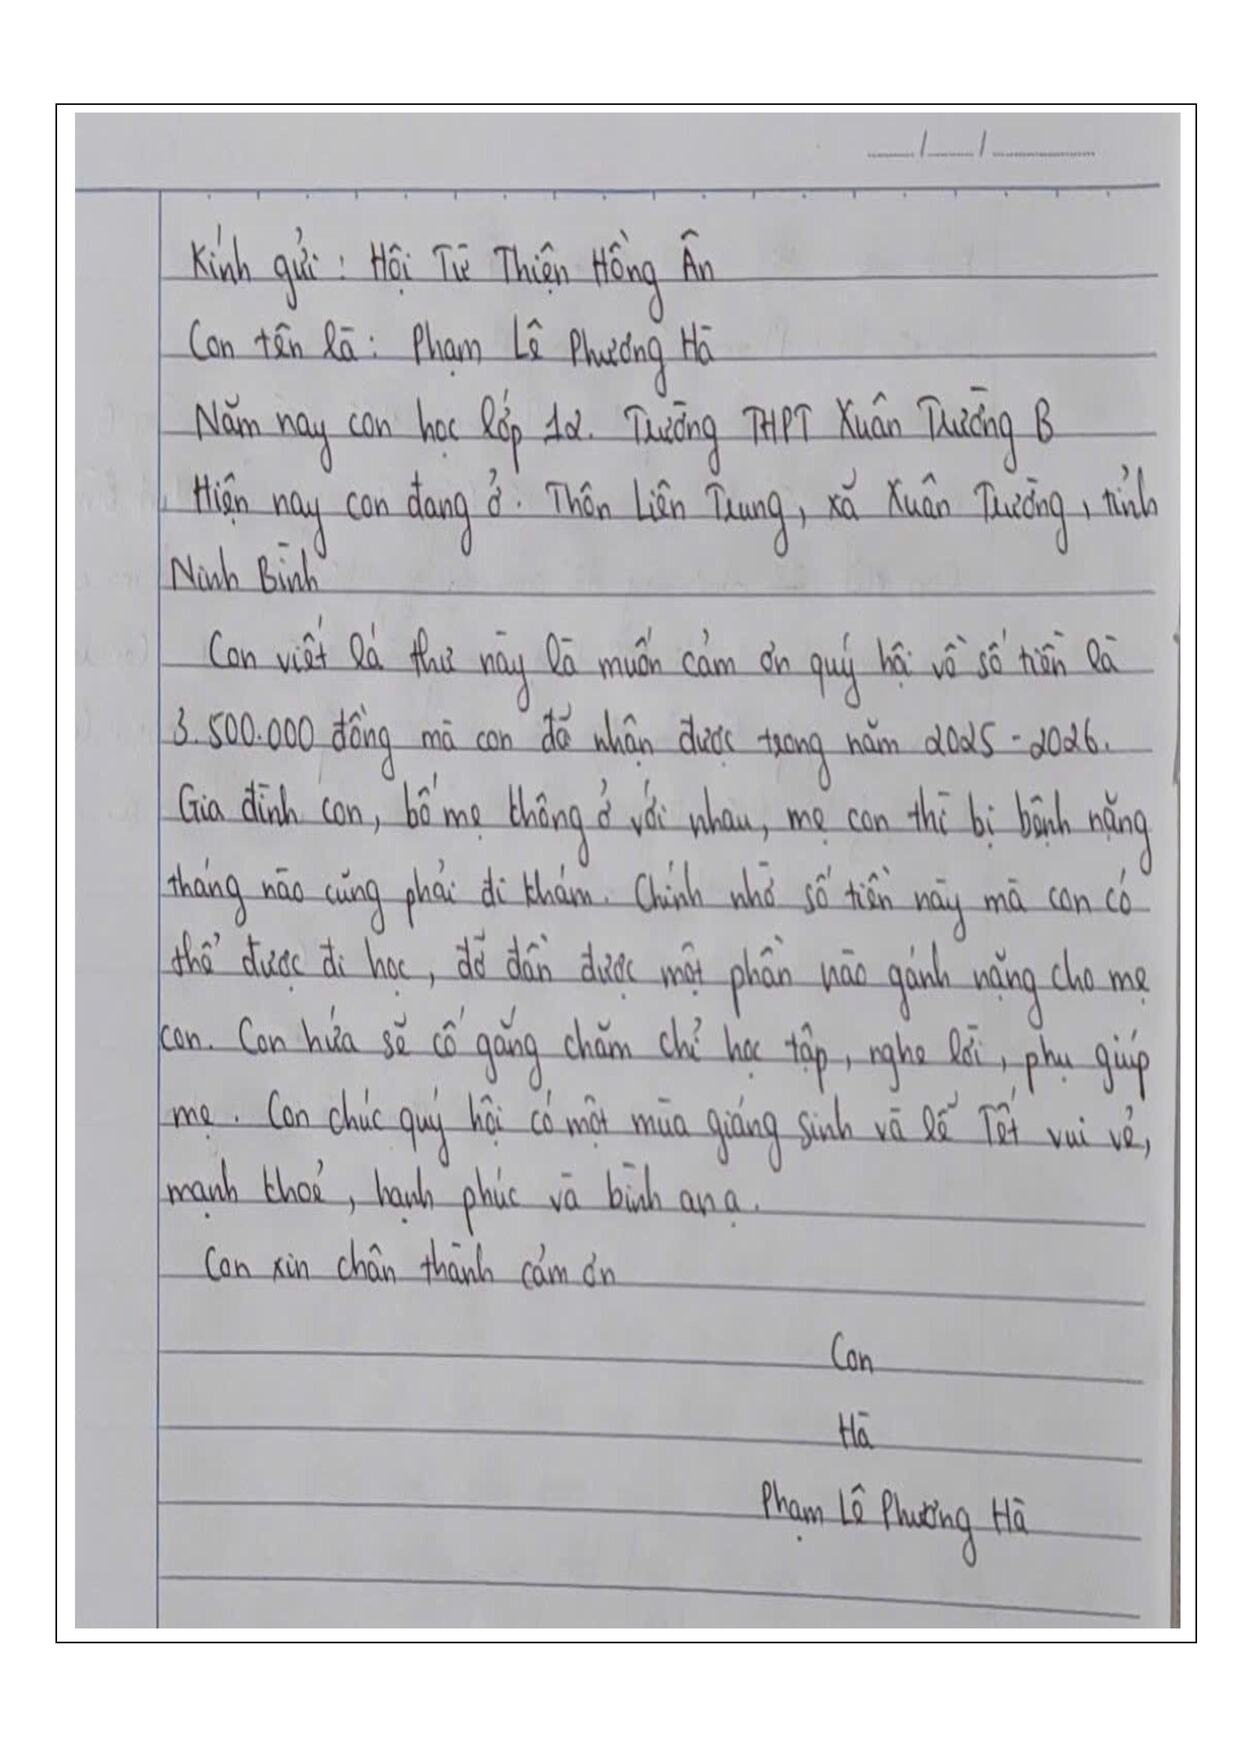 Kính gửi : Hội Từ Thiện Hồng Ân
Con tên là : Phạm Lê Phương Hà
Năm nay con học lớp 12. Trường THPT Xuân Trường B
Hiện nay con đang ở : Thôn Liên Trung, xã Xuân Trường, tỉnh
Ninh Bình
Con viết lá thư này là muốn cảm ơn quý hội về số tiền là
3.500.000 đồng mà con đã nhận được trong năm 2025 - 2026.
Gia đình con, bố mẹ không ở với nhau, mẹ con thì bị bệnh nặng
tháng nào cũng phải đi khám. Chính nhờ số tiền này mà con có
thể được đi học, đỡ đần được một phần nào gánh nặng cho mẹ
con. Con hứa sẽ cố gắng chăm chỉ học tập, nghe lời, phụ giúp
mẹ. Con chúc quý hội có một mùa giáng sinh và lễ Tết vui vẻ,
mạnh khoẻ, hạnh phúc và bình an ạ.
Con xin chân thành cảm ơn
Con
Hà
Phạm Lê Phương Hà